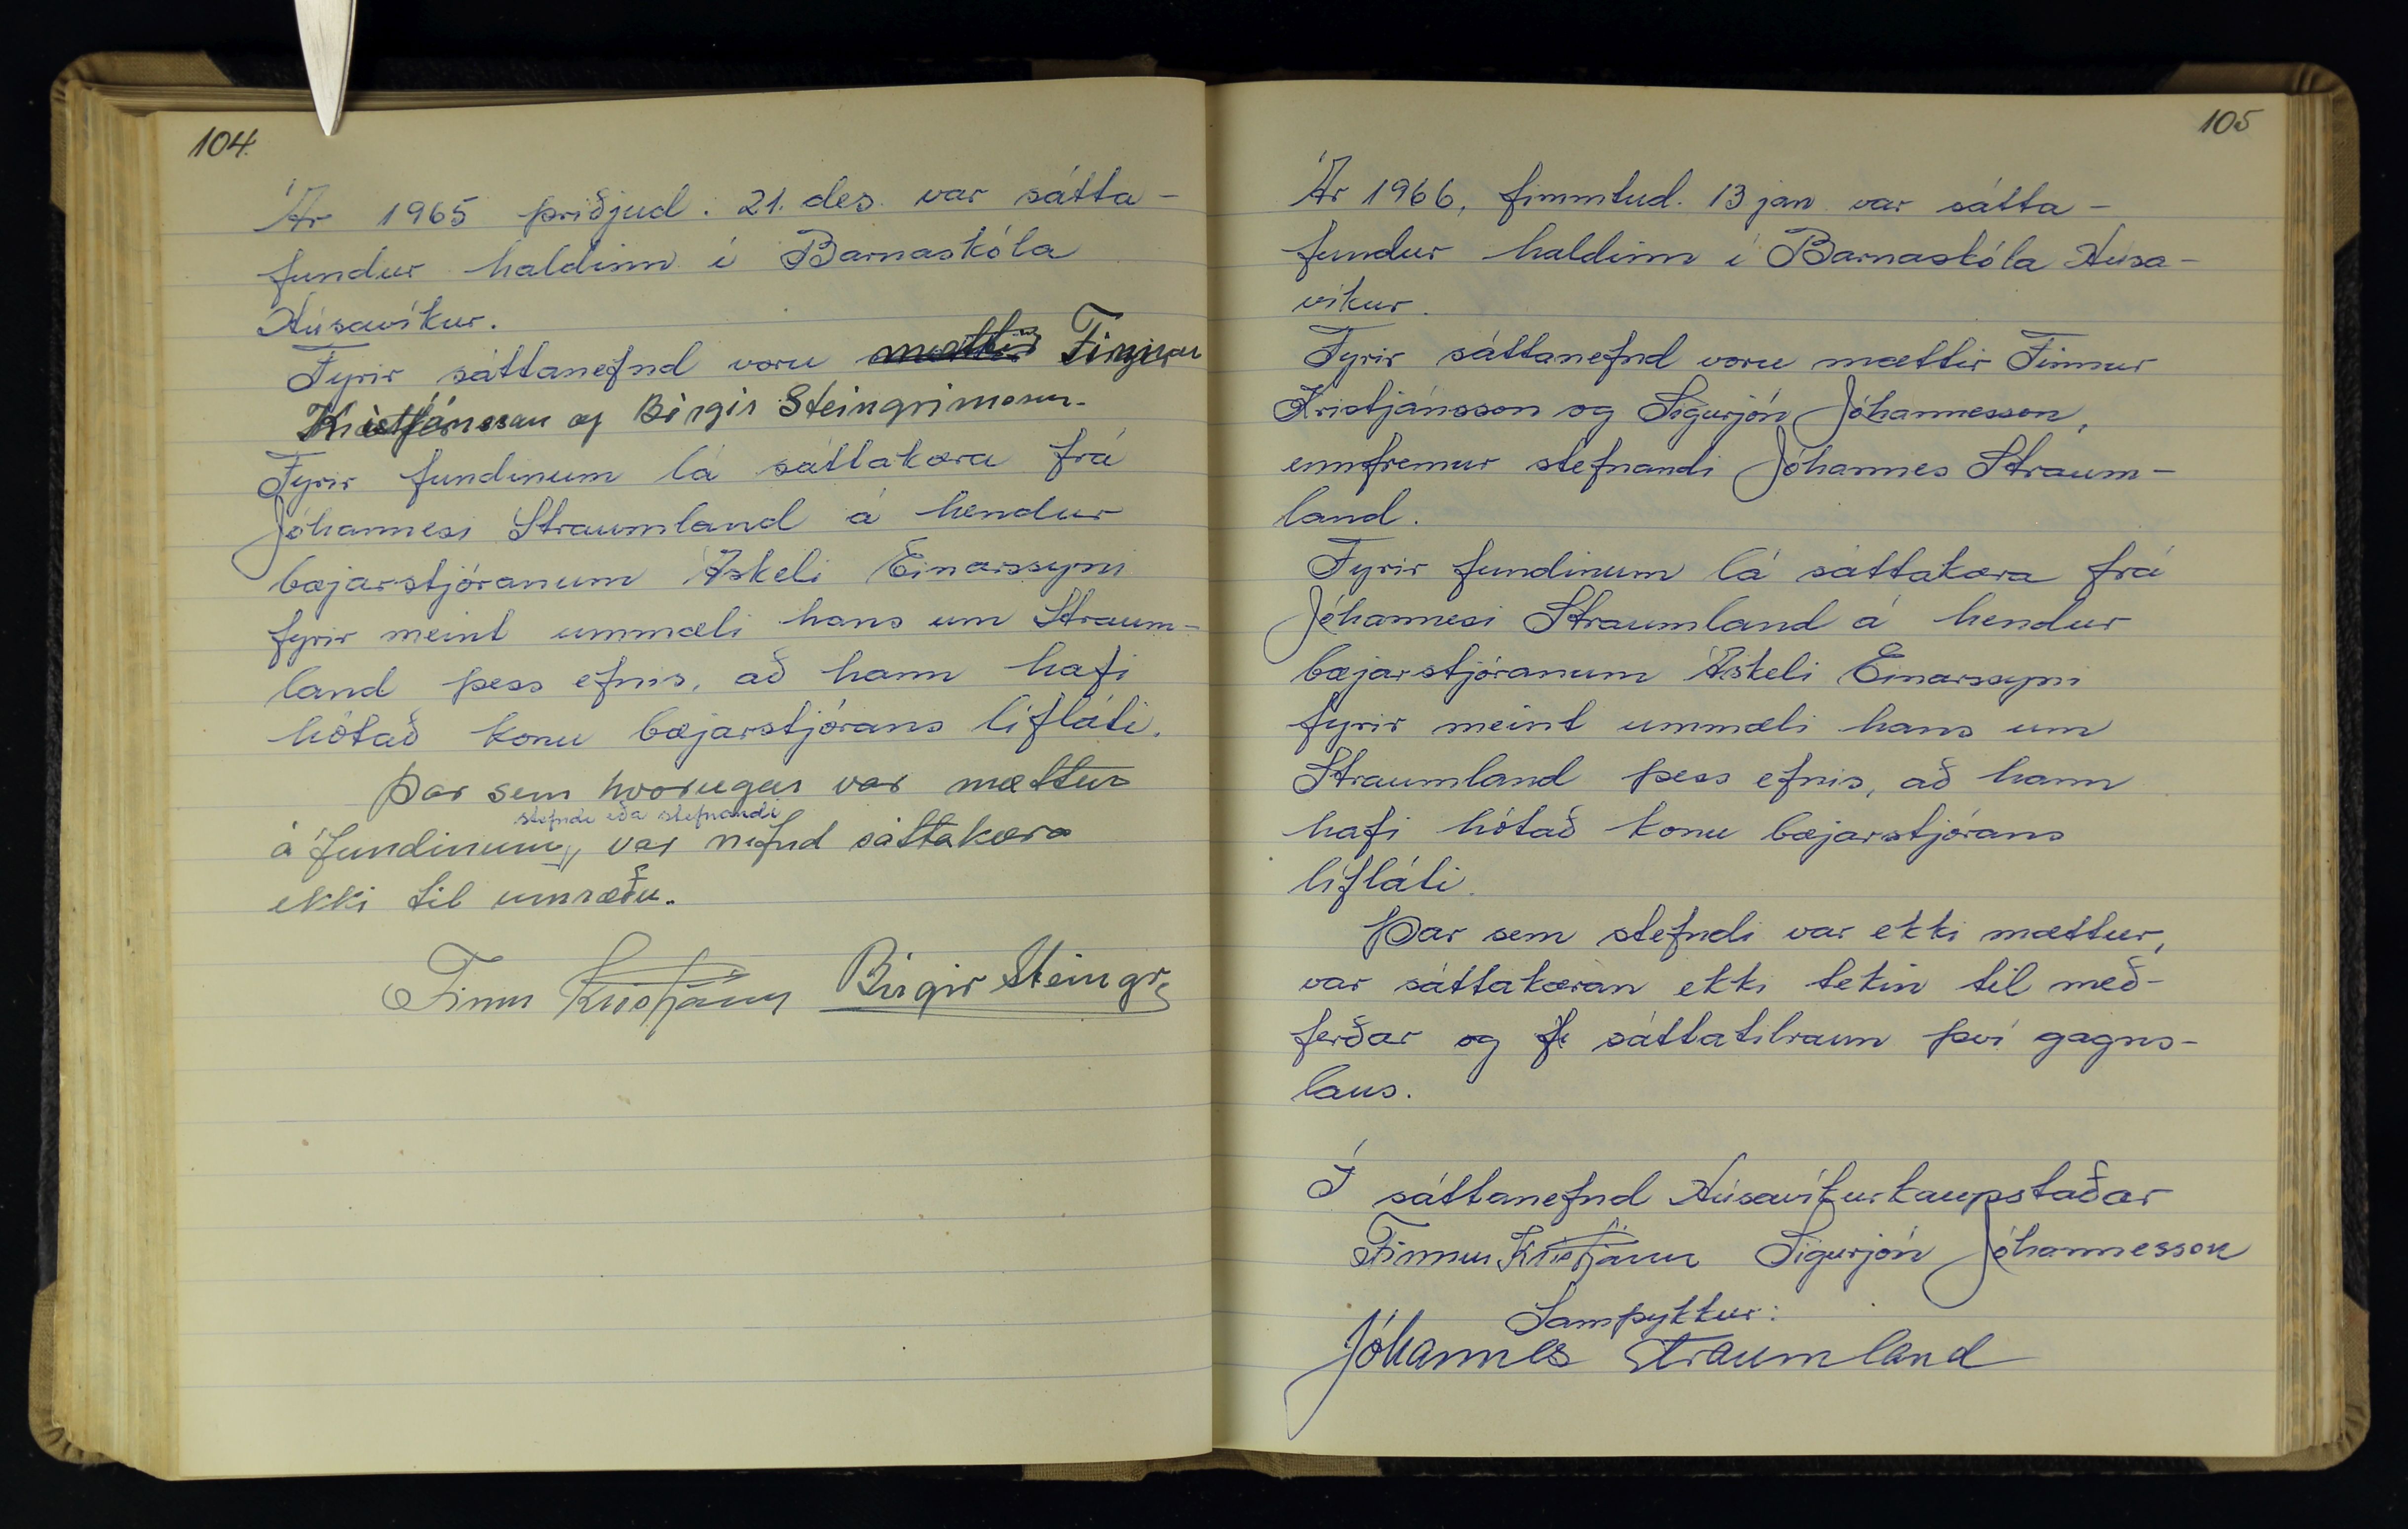 104.
Ár 1965 þriðjud. 21. des. var sátta-
fundur haldinn í Barnaskóla
Húsavíkur.
Fyrir sáttanefnd voru mættir Finnur
Kristjánsson og Birgir Steingrímsson.
Fyrir fundinum lá sáttakæra frá
Jóhannesi Straumland á hendur
bæjarstjóranum Áskeli Einarssyni
fyrir meint ummæli hans um Straum-
land þess efnis, að hann hafi
hótað konu bæjarstjórans lífláti.
Þar sem hvorugur var mættur
stefndi eða stefnandi
á fundinum, var nefnd sáttakæra
ekki til umræðu.
Finnur Kristjánss Birgir Steingr.
105
Ár 1966, fimmtud. 13 jan. var sátta-
fundur haldinn í Barnaskóla Húsa-
víkur.
Fyrir sáttanefnd voru mættir Finnur
Kristjánsson og Sigurjón Jóhannesson,
ennfremur stefnandi Jóhannes Straum-
land.
Fyrir fundinum lá sáttakæra frá
Jóhannesi Straumland á hendur
bæjarstjóranum Áskeli Einarssyni
fyrir meint ummæli hans um
Straumland þess efnis, að hann
hafi hótað konu bæjarstjórans
lífláti.
Þar sem stefndi var ekki mættur,
var sáttakæran ekki tekin til með-
ferðar og sáttatilraun því gagns-
laus.
Í sáttanefnd Húsavíkurkaupstaðar
Finnur Kristjánss Sigurjón Jóhannesson
Samþykkur:
Jóhannes Straumland